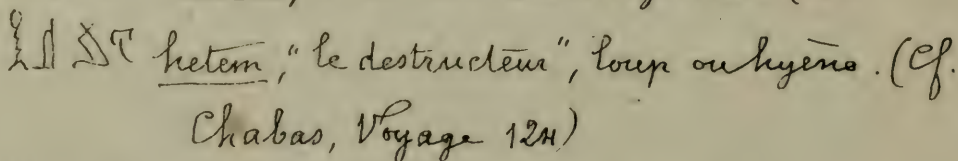 hetem, "le destructeur", loup ou hyène. (Cf.
Chabas, Voyage 124)